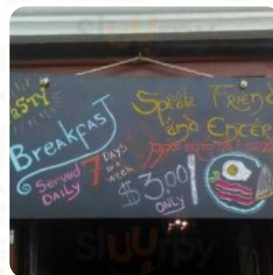 TASTY
BreakfasT
Served
DAILY
7 DAYS
in a
week
Speak Friend
and Enter
$3.00
ONLY
sluurpy